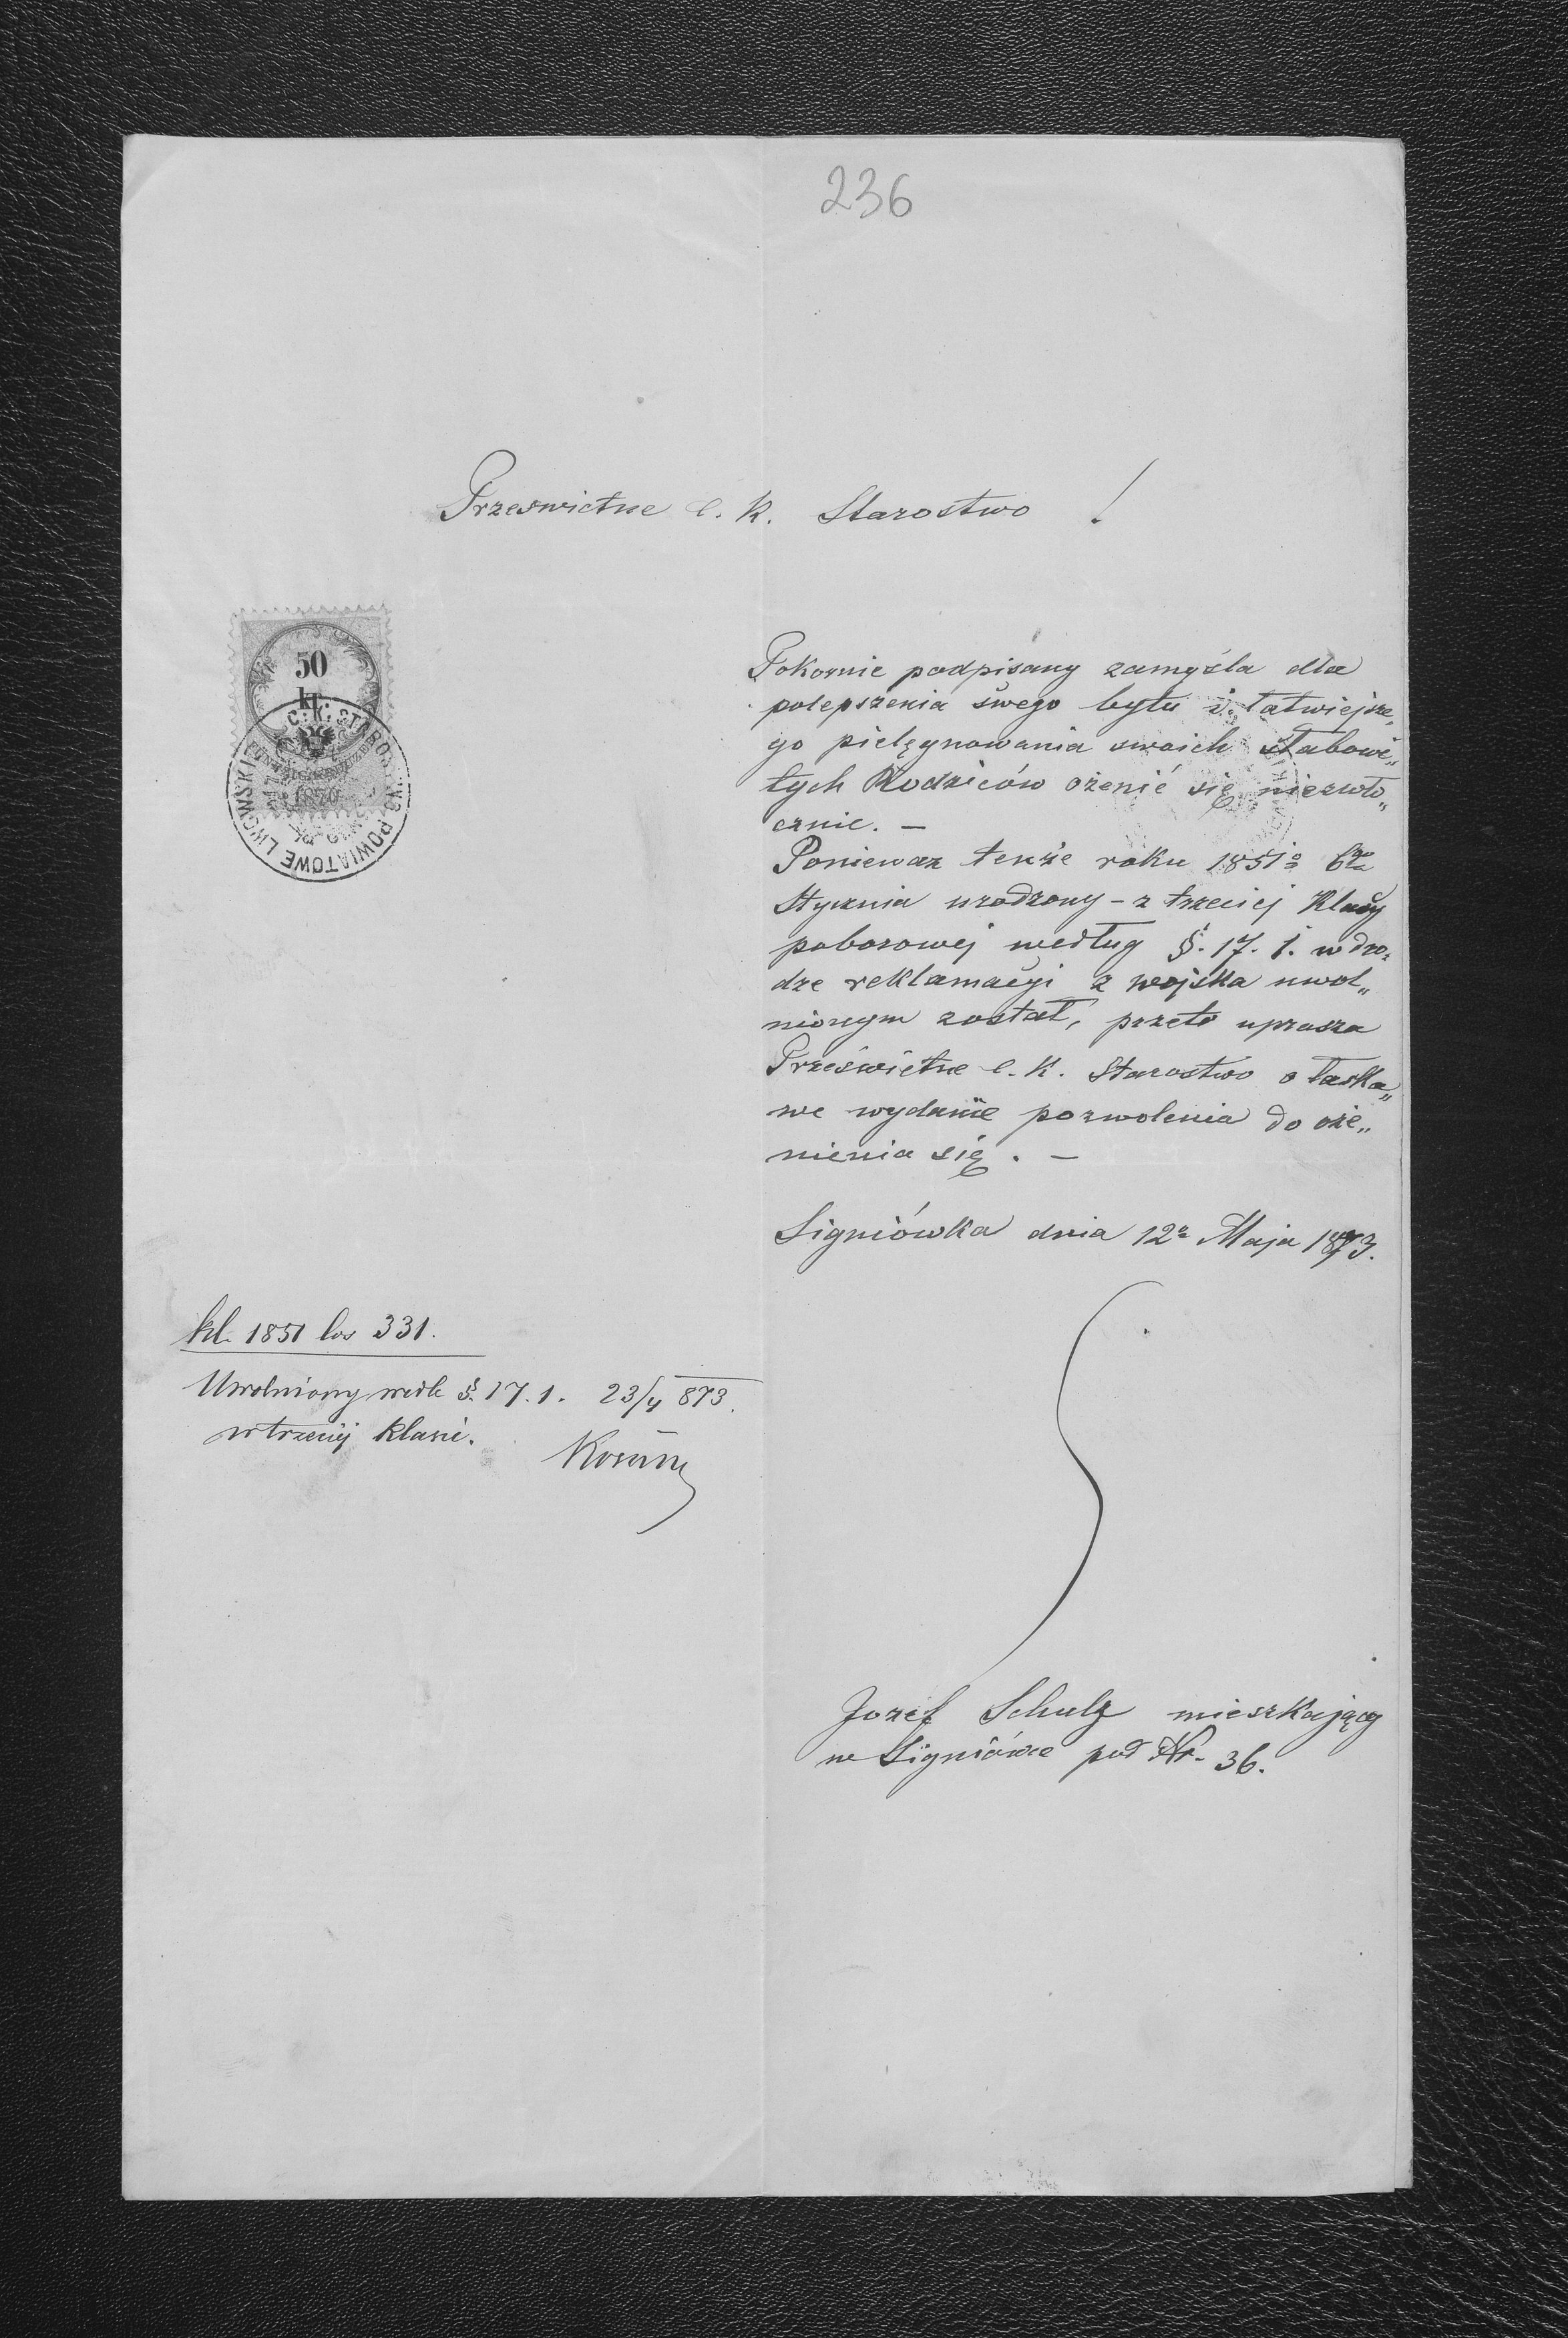 236
Przeswietne c. k. Starostwo !
50
kr.
C. K. STAROSTWO POWIATOWE LWOWSKIE
1870
Pokornie podpisany zamyśla dla
polepszenia swego bytu i łatwiejsze„
go pielęgnowania swoich słabowi„
tych Rodziców ożenić się niezwło„
cznie. —
Ponieważ tenże roku 1851o 6go
Stycznia urodzony – z trzeciej Klasy
poborowej według §. 17. 1. w dro„
dze reklamacyi z wojska uwol„
nionym został, przeto uprasza
Prześwietne c. K. Starostwo o łaska„
we wydanie pozwolenia do oże„
nienia się. —
Signiówka dnia 12o Maja 1873.
kl. 1851 los 331.
Uwolniony wedle §. 17. 1. 23/4 873.
w trzeciej klasie.
Jozef Schulz mieszkający
w Signiówce pod Nr. 36.